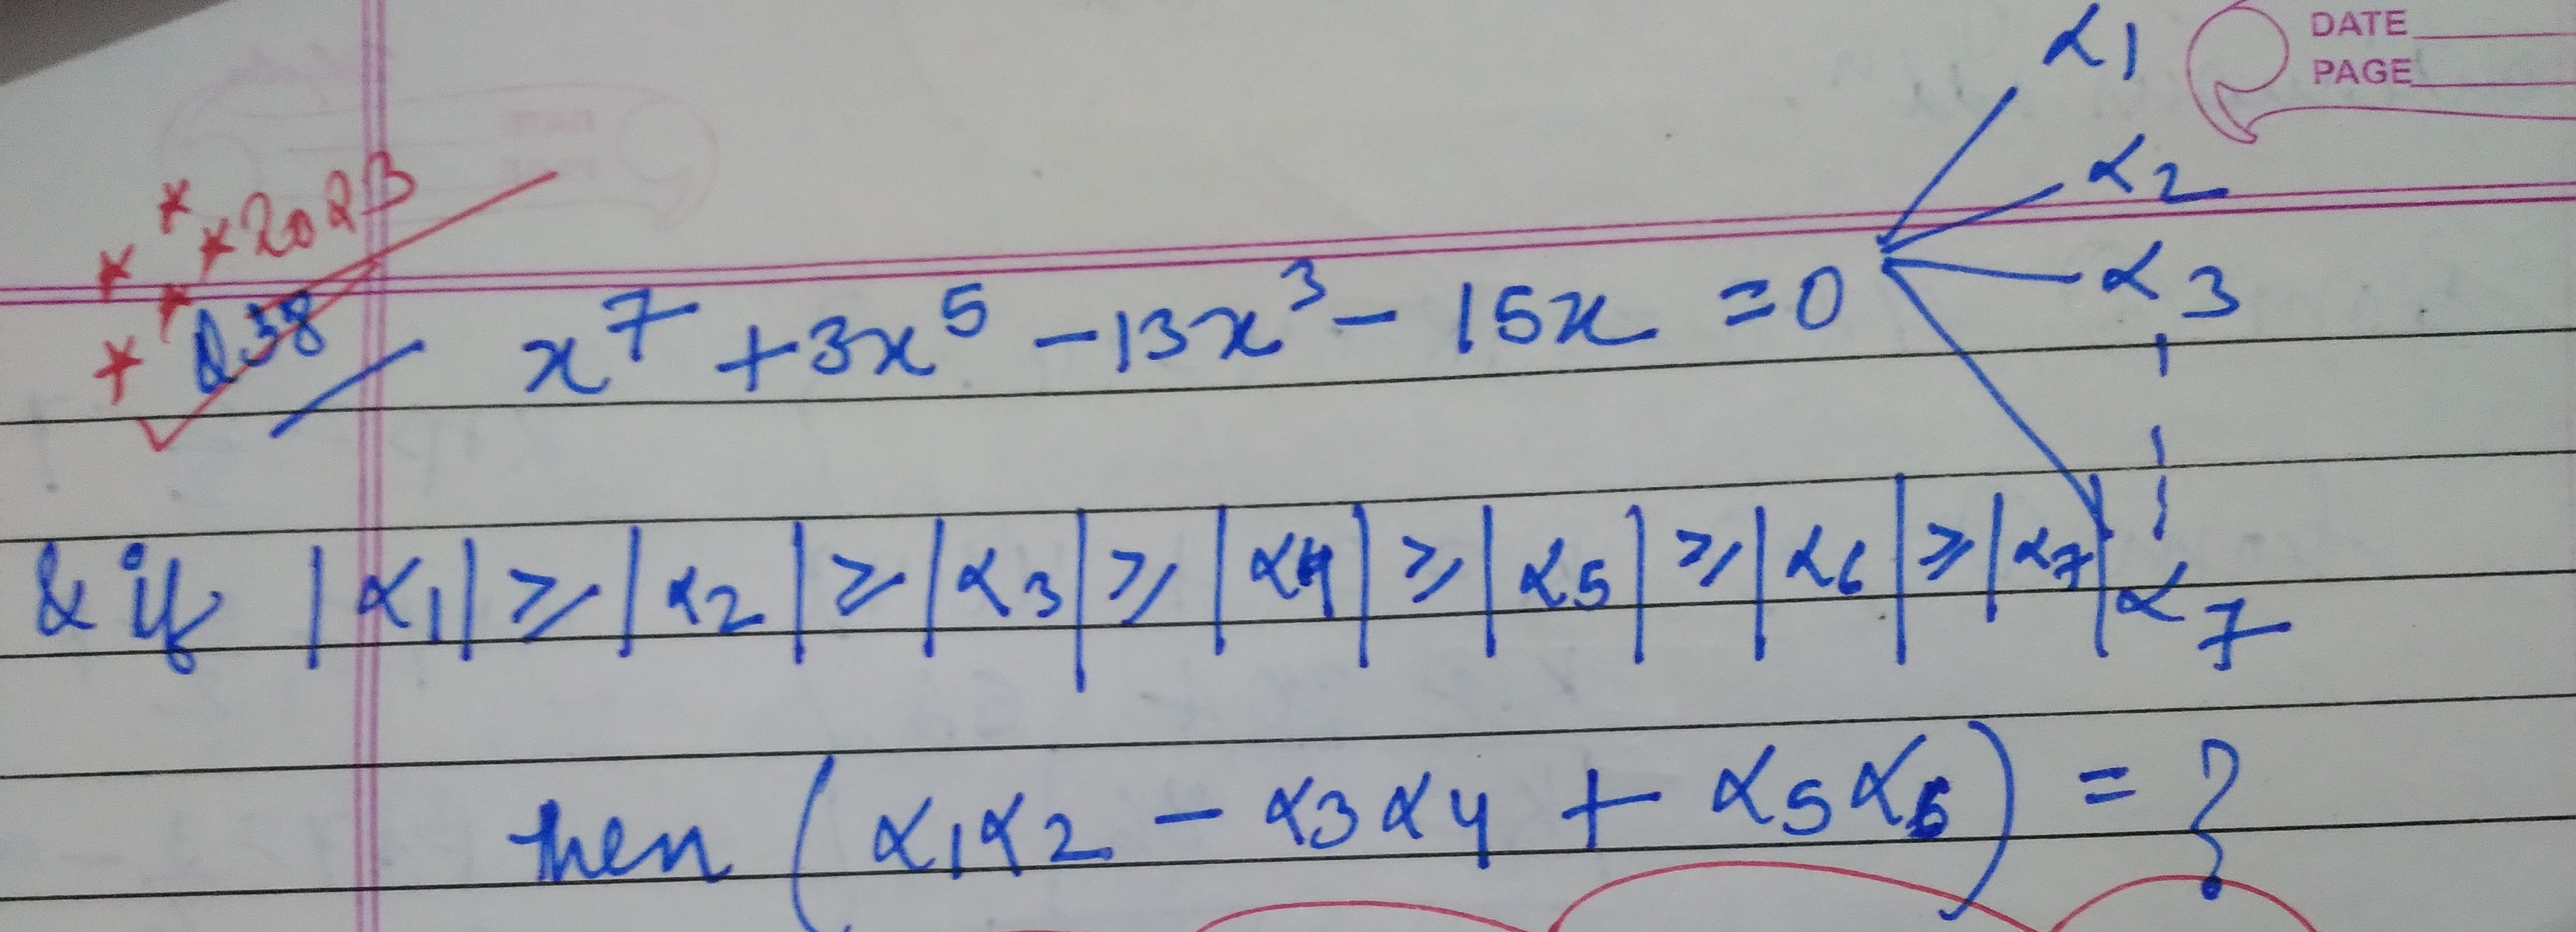 DATE
PAGE
α1
α2
* * * 2023
* * Q38 x⁷ + 3x⁵ - 13x³ - 15x = 0 α3
& if |α1| ≥ |α2| ≥ |α3| ≥ |α4| ≥ |α5| ≥ |α6| ≥ |α7| α7
then (α1α2 - α3α4 + α5α6) = ?